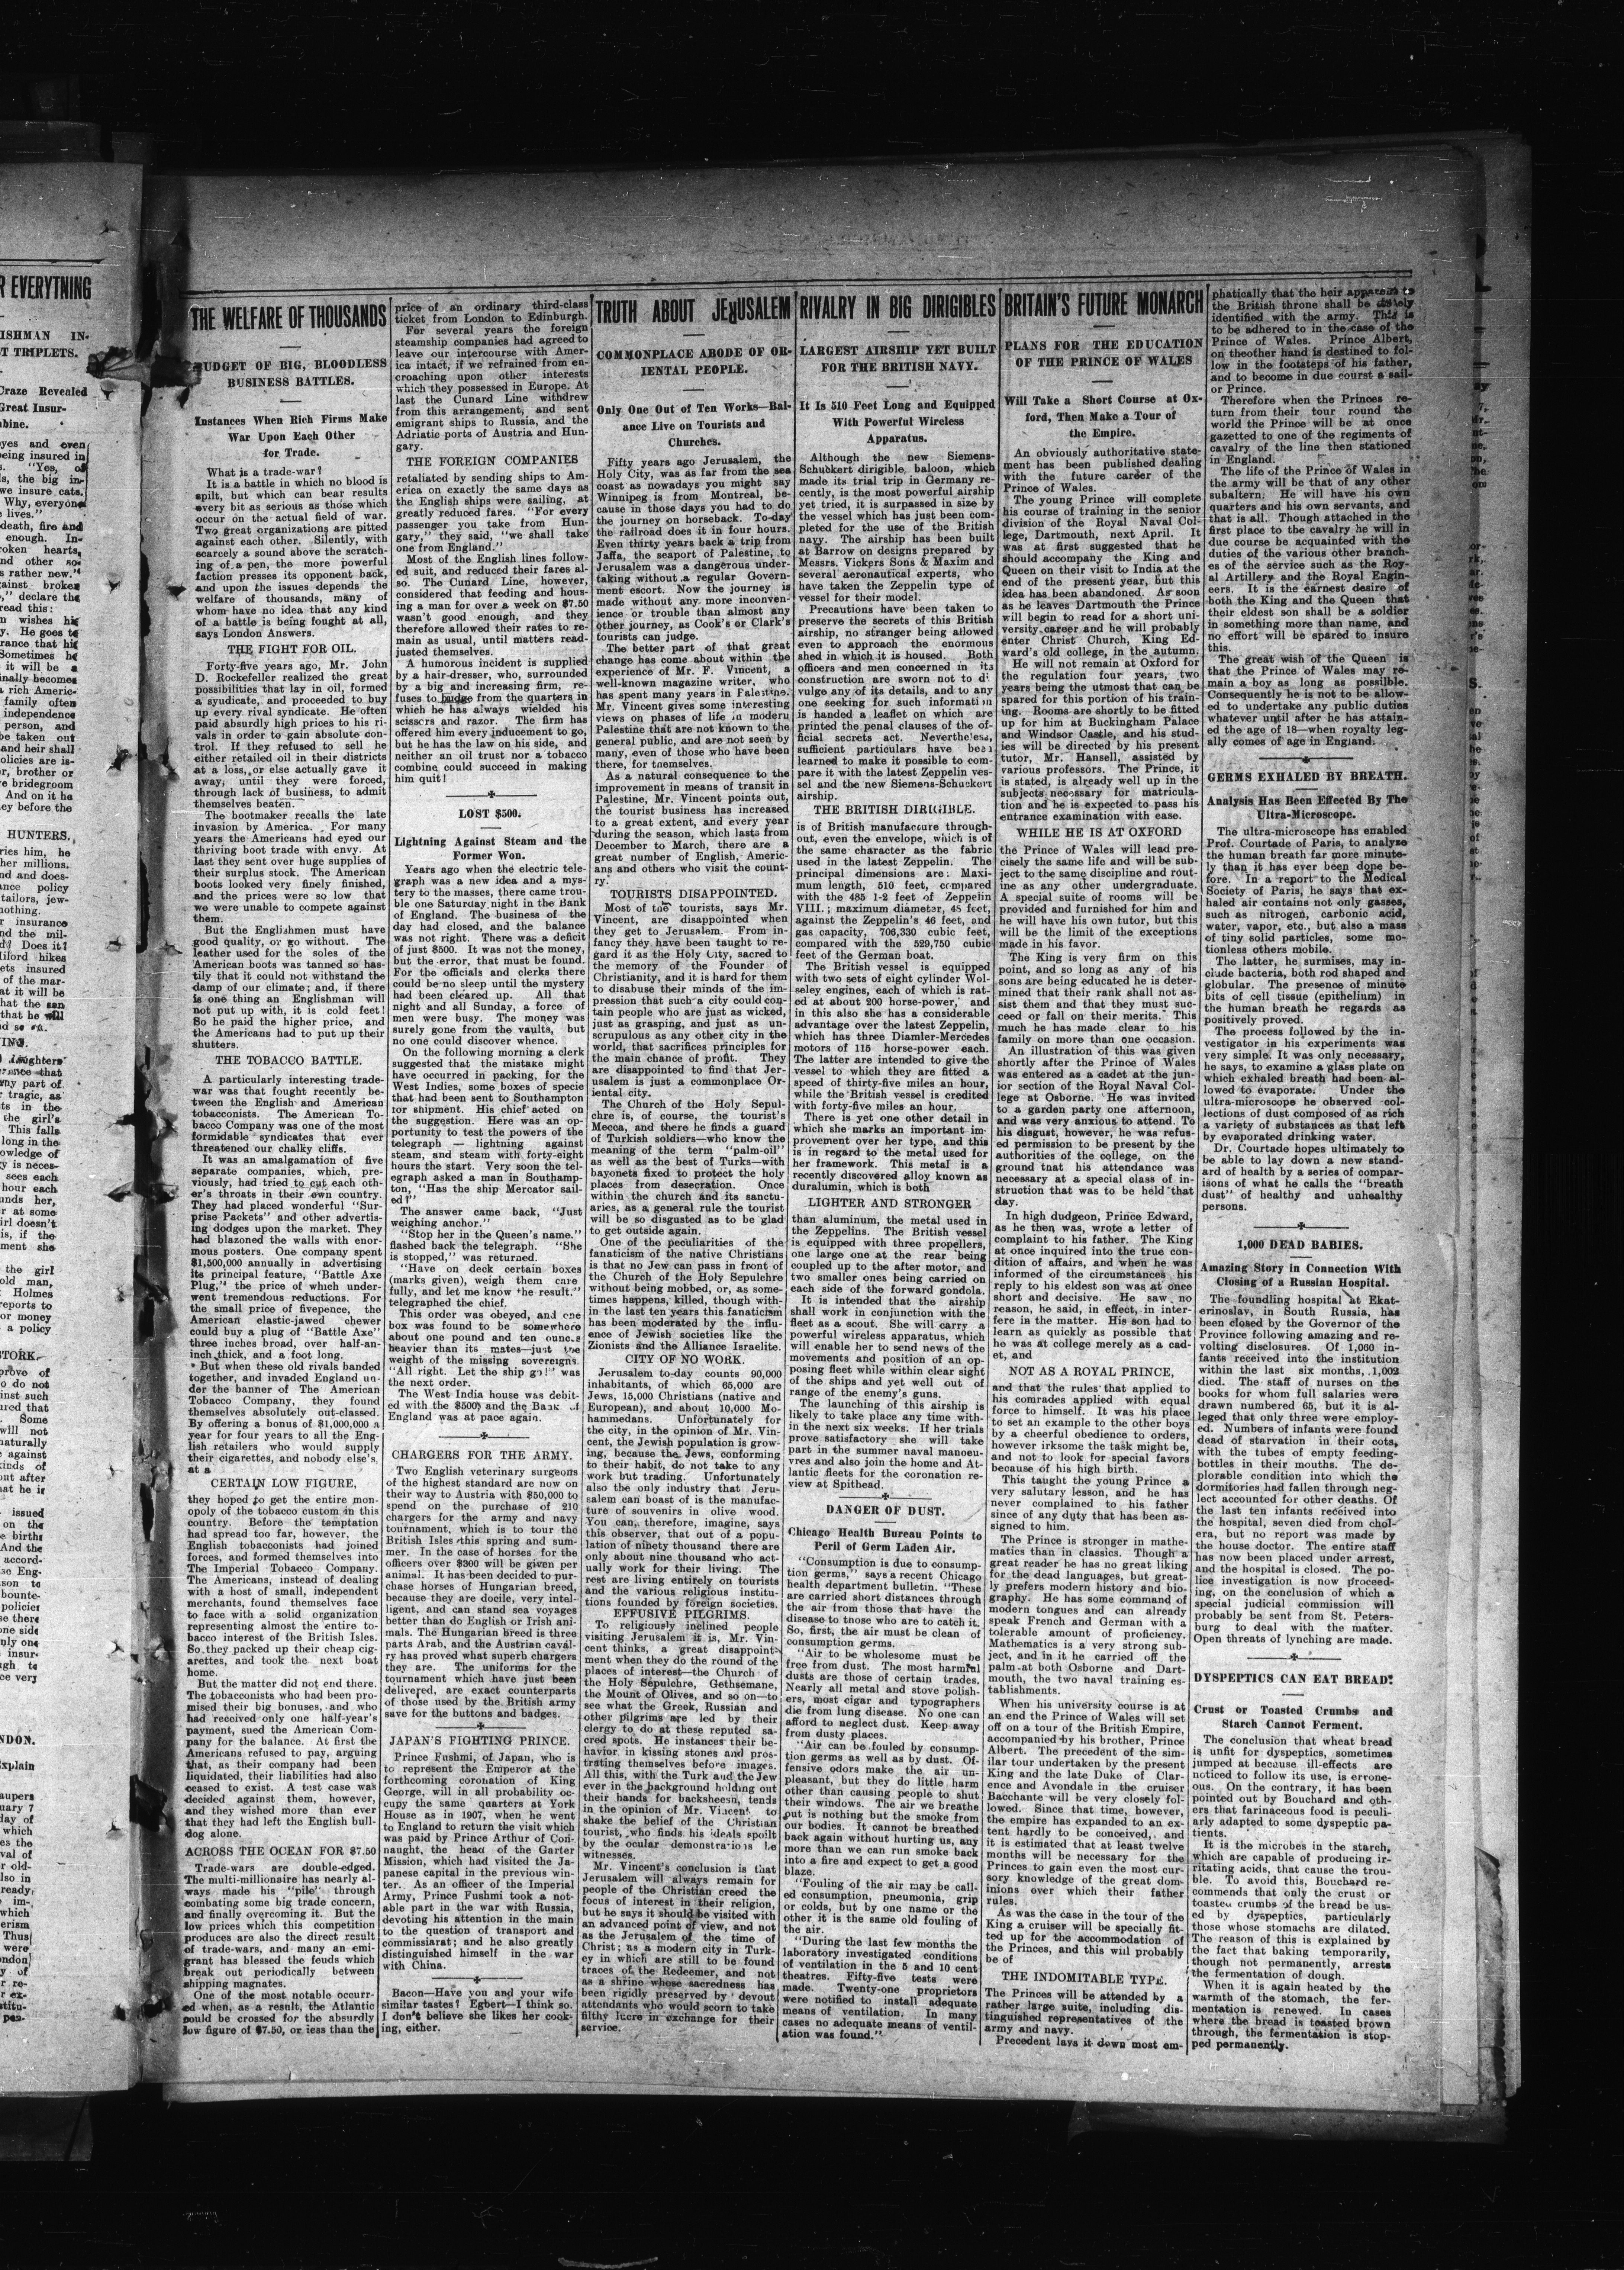 R EVERYTHING
ISHMAN IN-
T TRIPLETS.
Craze Revealed
Great Insur-
bine.
yes and even
being insured in
"Yes, of
s, the big in-
we insure cats.
Why, everyone
lives."
death, fire and
enough. In-
roken hearts,
nd other so-
s rather new."
ainst broken
," declare the
read this:
n wishes his
y. He goes to
rance that his
Sometimes he
it will be a
nally becomes
a rich Americ-
family often
independence
person, and
be taken out
and heir shall
olicies are is-
r, brother or
e bridegroom
And on it he
ey before the
HUNTERS.
ries him, he
her millions.
nd and does-
ance policy
tailors, jew-
nothing.
THE WELFARE OF THOUSANDS
BUDGET OF BIG, BLOODLESS
BUSINESS BATTLES.
Instances When Rich Firms Make
War Upon Each Other
for Trade.
What is a trade-war?
It is a battle in which no blood is
spilt, but which can bear results
every bit as serious as those which
occur on the actual field of war.
Two great organizations are pitted
against each other. Silently, with
scarcely a sound above the scratch-
ing of a pen, the more powerful
faction presses its opponent back,
and upon the issues depends the
welfare of thousands, many of
whom have no idea that any kind
of a battle is being fought at all,
says London Answers.
THE FIGHT FOR OIL.
Forty-five years ago, Mr. John
D. Rockefeller realized the great
possibilities that lay in oil, formed
a syndicate, and proceeded to buy
up every rival syndicate. He often
paid absurdly high prices to his ri-
vals in order to gain absolute con-
trol. If they refused to sell he
either retailed oil in their districts
at a loss, or else actually gave it
away, until they were forced,
through lack of business, to admit
themselves beaten.
The bootmaker recalls the late
invasion by America. For many
years the Americans had eyed our
thriving boot trade with envy. At
last they sent over huge supplies of
their surplus stock. The American
boots looked very finely finished,
and the prices were so low that
we were unable to compete against
them.
But the Englishmen must have
good quality, or go without. The
leather used for the soles of the
American boots was tanned so has-
tily that it could not withstand the
damp of our climate; and, if there
is one thing an Englishman will
not put up with, it is cold feet!
So he paid the higher price, and
the Americans had to put up their
shutters.
THE TOBACCO BATTLE.
A particularly interesting trade-
war was that fought recently be-
tween the English and American
tobacconists. The American To-
bacco Company was one of the most
formidable syndicates that ever
threatened our chalky cliffs.
It was an amalgamation of five
separate companies, which, pre-
viously, had tried to cut each oth-
er's throats in their own country.
They had placed wonderful "Sur-
prise Packets" and other advertis-
ing dodges upon the market. They
had blazoned the walls with enor-
mous posters. One company spent
$1,500,000 annually in advertising
its principal feature, "Battle Axe
Plug," the price of which under-
went tremendous reductions. For
the small price of fivepence, the
American elastic-jawed chewer
could buy a plug of "Battle Axe"
three inches broad, over half-an-
inch thick, and a foot long.
But when these old rivals banded
together, and invaded England un-
der the banner of The American
Tobacco Company, they found
themselves absolutely out-classed.
By offering a bonus of $1,000,000 a
year for four years to all the Eng-
lish retailers who would supply
their cigarettes, and nobody else's,
at a
CERTAIN LOW FIGURE,
they hoped to get the entire mon-
opoly of the tobacco custom in this
country. Before the temptation
had spread too far, however, the
English tobacconists had joined
forces, and formed themselves into
The Imperial Tobacco Company.
The Americans, instead of dealing
with a host of small, independent
merchants, found themselves face
to face with a solid organization
representing almost the entire to-
bacco interest of the British Isles.
So they packed up their cheap cig-
arettes, and took the next boat
home.
But the matter did not end there.
The tobacconists who had been pro-
mised their big bonuses, and who
had received only one half-year's
payment, sued the American Com-
pany for the balance. At first the
Americans refused to pay, arguing
that, as their company had been
liquidated, their liabilities had also
ceased to exist. A test case was
decided against them, however,
and they wished more than ever
that they had left the English bull-
dog alone.
ACROSS THE OCEAN FOR $7.50
Trade-wars are double-edged.
The multi-millionaire has nearly al-
ways made his "pile" through
combating some big trade concern,
and finally overcoming it. But the
low prices which this competition
produces are also the direct result
of trade-wars, and many an emi-
grant has blessed the feuds which
break out periodically between
shipping magnates.
One of the most notable occurr-
ed when, as a result, the Atlantic
could be crossed for the absurdly
low figure of $7.50, or less than the
price of an ordinary third-class
ticket from London to Edinburgh.
For several years the foreign
steamship companies had agreed to
leave our intercourse with Amer-
ica intact, if we refrained from en-
croaching upon other interests
which they possessed in Europe. At
last the Cunard Line withdrew
from this arrangement, and sent
emigrant ships to Russia, and the
Adriatic ports of Austria and Hun-
gary.
THE FOREIGN COMPANIES
retaliated by sending ships to Am-
erica on exactly the same days as
the English ships were sailing, at
greatly reduced fares. "For every
passenger you take from Hun-
gary," they said, "we shall take
one from England."
Most of the English lines follow-
ed suit, and reduced their fares al-
so. The Cunard Line, however,
considered that feeding and hous-
ing a man for over a week on $7.50
wasn't good enough, and they
therefore allowed their rates to re-
main as usual, until matters read-
justed themselves.
A humorous incident is supplied
by a hair-dresser, who, surrounded
by a big and increasing firm, re-
fuses to budge from the quarters in
which he has always wielded his
scissors and razor. The firm has
offered him every inducement to go,
but he has the law on his side, and
neither an oil trust nor a tobacco
combine could succeed in making
him quit!
LOST $500.
Lightning Against Steam and the
Former Won.
Years ago when the electric tele-
graph was a new idea and a mys-
tery to the masses, there came trou-
ble one Saturday night in the Bank
of England. The business of the
day had closed, and the balance
was not right. There was a deficit
of just $500. It was not the money,
but the error, that must be found.
For the officials and clerks there
could be no sleep until the mystery
had been cleared up. All that
night and all Sunday, a force of
men were busy. The money was
surely gone from the vaults, but
no one could discover whence.
On the following morning a clerk
suggested that the mistake might
have occurred in packing, for the
West Indies, some boxes of specie
that had been sent to Southampton
for shipment. His chief acted on
the suggestion. Here was an op-
portunity to test the powers of the
telegraph — lightning against
steam, and steam with forty-eight
hours the start. Very soon the tel-
egraph asked a man in Southamp-
ton, "Has the ship Mercator sail-
ed?"
The answer came back, "Just
weighing anchor."
"Stop her in the Queen's name."
flashed back the telegraph. "She
is stopped," was returned.
"Have on deck certain boxes
(marks given), weigh them care
fully, and let me know the result."
telegraphed the chief.
This order was obeyed, and one
box was found to be somewhere
about one pound and ten ounces
heavier than its mates—just the
weight of the missing sovereigns.
"All right. Let the ship go!" was
the next order.
The West India house was debit-
ed with the $500 and the Bank of
England was at peace again.
CHARGERS FOR THE ARMY.
Two English veterinary surgeons
of the highest standard are now on
their way to Austria with $50,000 to
spend on the purchase of 210
chargers for the army and navy
tournament, which is to tour the
British Isles this spring and sum-
mer. In the case of horses for the
officers over $300 will be given per
animal. It has been decided to pur-
chase horses of Hungarian breed,
because they are docile, very intel-
ligent, and can stand sea voyages
better than do English or Irish ani-
mals. The Hungarian breed is three
parts Arab, and the Austrian caval-
ry has proved what superb chargers
they are. The uniforms for the
tournament which have just been
delivered, are exact counterparts
of those used by the British army
save for the buttons and badges.
JAPAN'S FIGHTING PRINCE.
Prince Fushmi, of Japan, who is
to represent the Emperor at the
forthcoming coronation of King
George, will in all probability oc-
cupy the same quarters at York
House as in 1907, when he went
to England to return the visit which
was paid by Prince Arthur of Con-
naught, the head of the Garter
Mission, which had visited the Ja-
panese capital in the previous win-
ter. As an officer of the Imperial
Army, Prince Fushmi took a not-
able part in the war with Russia,
devoting his attention in the main
to the question of transport and
commissariat; and he also greatly
distinguished himself in the war
with China.
Bacon—Have you and your wife
similar tastes? Egbert—I think so.
I don't believe she likes her cook-
ing, either.
TRUTH ABOUT JERUSALEM
COMMONPLACE ABODE OF OR-
IENTAL PEOPLE.
Only One Out of Ten Works—Bal-
ance Live on Tourists and
Churches.
Fifty years ago Jerusalem, the
Holy City, was as far from the sea
coast as nowadays you might say
Winnipeg is from Montreal, be-
cause in those days you had to do
the journey on horseback. To-day
the railroad does it in four hours.
Even thirty years back a trip from
Jaffa, the seaport of Palestine, to
Jerusalem was a dangerous under-
taking without a regular Govern-
ment escort. Now the journey is
made without any more inconven-
ience or trouble than almost any
other journey, as Cook's or Clark's
tourists can judge.
The better part of that great
change has come about within the
experience of Mr. F. Vincent, a
well-known magazine writer, who
has spent many years in Palestine.
Mr. Vincent gives some interesting
views on phases of life in modern
Palestine that are not known to the
general public, and are not seen by
many, even of those who have been
there, for themselves.
As a natural consequence to the
improvement in means of transit in
Palestine, Mr. Vincent points out,
the tourist business has increased
to a great extent, and every year
during the season, which lasts from
December to March, there are a
great number of English, Americ-
ans and others who visit the count-
ry.
TOURISTS DISAPPOINTED.
Most of the tourists, says Mr.
Vincent, are disappointed when
they get to Jerusalem. From in-
fancy they have been taught to re-
gard it as the Holy City, sacred to
the memory of the Founder of
Christianity, and it is hard for them
to disabuse their minds of the im-
pression that such a city could con-
tain people who are just as wicked,
just as grasping, and just as un-
scrupulous as any other city in the
world, that sacrifices principles for
the main chance of profit. They
are disappointed to find that Jer-
usalem is just a commonplace Or-
iental city.
The Church of the Holy Sepul-
chre is, of course, the tourist's
Mecca, and there he finds a guard
of Turkish soldiers—who know the
meaning of the term "palm-oil"
as well as the best of Turks—with
bayonets fixed to protect the holy
places from desecration. Once
within the church and its sanctu-
aries, as a general rule the tourist
will be so disgusted as to be glad
to get outside again.
One of the peculiarities of the
fanaticism of the native Christians
is that no Jew can pass in front of
the Church of the Holy Sepulchre
without being mobbed, or, as some-
times happens, killed, though with-
in the last ten years this fanaticism
has been moderated by the influ-
ence of Jewish societies like the
Zionists and the Alliance Israelite.
CITY OF NO WORK.
Jerusalem to-day counts 90,000
inhabitants, of which 65,000 are
Jews, 15,000 Christians (native and
European), and about 10,000 Mo-
hammedans. Unfortunately for
the city, in the opinion of Mr. Vin-
cent, the Jewish population is grow-
ing, because the Jews, conforming
to their habit, do not take to any
work but trading. Unfortunately
also the only industry that Jeru-
salem can boast of is the manufac-
ture of souvenirs in olive wood.
You can, therefore, imagine, says
this observer, that out of a popu-
lation of ninety thousand there are
only about nine thousand who act-
ually work for their living. The
rest are living entirely on tourists
and the various religious institu-
tions founded by foreign societies.
EFFUSIVE PILGRIMS.
To religiously inclined people
visiting Jerusalem it is, Mr. Vin-
cent thinks, a great disappoint-
ment when they do the round of the
places of interest—the Church of
the Holy Sepulchre, Gethsemane,
the Mount of Olives, and so on—to
see what the Greek, Russian and
other pilgrims are led by their
clergy to do at these reputed sa-
cred spots. He instances their be-
havior in kissing stones and pros-
trating themselves before images.
All this, with the Turk and the Jew
ever in the background holding out
their hands for backsheesh, tends
in the opinion of Mr. Vincent to
shake the belief of the Christian
tourist, who finds his ideals spoilt
by the ocular demonstrations he
witnesses.
Mr. Vincent's conclusion is that
Jerusalem will always remain for
people of the Christian creed the
focus of interest in their religion,
but he says it should be visited with
an advanced point of view, and not
as the Jerusalem of the time of
Christ; as a modern city in Turk-
ey in which are still to be found
traces of the Redeemer, and not
as a shrine whose sacredness has
been rigidly preserved by devout
attendants who would scorn to take
filthy lucre in exchange for their
service.
RIVALRY IN BIG DIRIGIBLES
LARGEST AIRSHIP YET BUILT
FOR THE BRITISH NAVY.
It Is 510 Feet Long and Equipped
With Powerful Wireless
Apparatus.
Although the new Siemens-
Schubkert dirigible baloon, which
made its trial trip in Germany re-
cently, is the most powerful airship
yet tried, it is surpassed in size by
the vessel which has just been com-
pleted for the use of the British
navy. The airship has been built
at Barrow on designs prepared by
Messrs. Vickers Sons & Maxim and
several aeronautical experts, who
have taken the Zeppelin type of
vessel for their model.
Precautions have been taken to
preserve the secrets of this British
airship, no stranger being allowed
even to approach the enormous
shed in which it is housed. Both
officers and men concerned in its
construction are sworn not to di
vulge any of its details, and to any
one seeking for such information
is handed a leaflet on which are
printed the penal clauses of the of-
ficial secrets act. Nevertheless,
sufficient particulars have been
learned to make it possible to com-
pare it with the latest Zeppelin ves-
sel and the new Siemens-Schuckert
airship.
THE BRITISH DIRIGIBLE.
is of British manufacture through-
out, even the envelope, which is of
the same character as the fabric
used in the latest Zeppelin. The
principal dimensions are: Maxi-
mum length, 510 feet, compared
with the 485 1-2 feet of Zeppelin
VIII.; maximum diameter, 48 feet,
against the Zeppelin's 46 feet, and
gas capacity, 706,330 cubic feet,
compared with the 529,750 cubic
feet of the German boat.
The British vessel is equipped
with two sets of eight cylinder Wol-
seley engines, each of which is rat-
ed at about 200 horse-power, and
in this also she has a considerable
advantage over the latest Zeppelin,
which has three Diamler-Mercedes
motors of 115 horse-power each.
The latter are intended to give the
vessel to which they are fitted a
speed of thirty-five miles an hour,
while the British vessel is credited
with forty-five miles an hour.
There is yet one other detail in
which she marks an important im-
provement over her type, and this
is in regard to the metal used for
her framework. This metal is a
recently discovered alloy known as
duralumin, which is both
LIGHTER AND STRONGER
than aluminum, the metal used in
the Zeppelins. The British vessel
is equipped with three propellers,
one large one at the rear being
coupled up to the after motor, and
two smaller ones being carried on
each side of the forward gondola.
It is intended that the airship
shall work in conjunction with the
fleet as a scout. She will carry a
powerful wireless apparatus, which
will enable her to send news of the
movements and position of an op-
posing fleet while within clear sight
of the ships and yet well out of
range of the enemy's guns.
The launching of this airship is
likely to take place any time with-
in the next six weeks. If her trials
prove satisfactory she will take
part in the summer naval manoeu-
vres and also join the home and At-
lantic fleets for the coronation re-
view at Spithead.
DANGER OF DUST.
Chicago Health Bureau Points to
Peril of Germ Laden Air.
"Consumption is due to consump-
tion germs," says a recent Chicago
health department bulletin. "These
are carried short distances through
the air from those that have the
disease to those who are to catch it.
So, first, the air must be clean of
consumption germs.
"Air to be wholesome must be
free from dust. The most harmful
dusts are those of certain trades.
Nearly all metal and stove polish-
ers, most cigar and typographers
die from lung disease. No one can
afford to neglect dust. Keep away
from dusty places.
"Air can be fouled by consump-
tion germs as well as by dust. Of-
fensive odors make the air un-
pleasant, but they do little harm
other than causing people to shut
their windows. The air we breathe
out is nothing but the smoke from
our bodies. It cannot be breathed
back again without hurting us, any
more than we can run smoke back
into a fire and expect to get a good
blaze.
"Fouling of the air may be call-
ed consumption, pneumonia, grip
or colds, but by one name or the
other it is the same old fouling of
the air.
"During the last few months the
laboratory investigated conditions
of ventilation in the 5 and 10 cent
theatres. Fifty-five tests were
made. Twenty-one proprietors
were notified to install adequate
means of ventilation. In many
cases no adequate means of ventil-
ation was found."
BRITAIN'S FUTURE MONARCH
PLANS FOR THE EDUCATION
OF THE PRINCE OF WALES
Will Take a Short Course at Ox-
ford, Then Make a Tour of
the Empire.
An obviously authoritative state-
ment has been published dealing
with the future career of the
Prince of Wales.
The young Prince will complete
his course of training in the senior
division of the Royal Naval Col-
lege, Dartmouth, next April. It
was at first suggested that he
should accompany the King and
Queen on their visit to India at the
end of the present year, but this
idea has been abandoned. As soon
as he leaves Dartmouth the Prince
will begin to read for a short uni-
versity career and he will probably
enter Christ Church, King Ed-
ward's old college, in the autumn.
He will not remain at Oxford for
the regulation four years, two
years being the utmost that can be
spared for this portion of his train-
ing. Rooms are shortly to be fitted
up for him at Buckingham Palace
and Windsor Castle, and his stud-
ies will be directed by his present
tutor, Mr. Hansell, assisted by
various professors. The Prince, it
is stated, is already well up in the
subjects necessary for matricula-
tion and he is expected to pass his
entrance examination with ease.
WHILE HE IS AT OXFORD
the Prince of Wales will lead pre-
cisely the same life and will be sub-
ject to the same discipline and rout-
ine as any other undergraduate.
A special suite of rooms will be
provided and furnished for him and
he will have his own tutor, but this
will be the limit of the exceptions
made in his favor.
The King is very firm on this
point, and so long as any of his
sons are being educated he is deter-
mined that their rank shall not as-
sist them and that they must suc-
ceed or fall on their merits. This
much he has made clear to his
family on more than one occasion.
An illustration of this was given
shortly after the Prince of Wales
was entered as a cadet at the jun-
ior section of the Royal Naval Col-
lege at Osborne. He was invited
to a garden party one afternoon,
and was very anxious to attend. To
his disgust, however, he was refus-
ed permission to be present by the
authorities of the college, on the
ground that his attendance was
necessary at a special class of in-
struction that was to be held that
day.
In high dudgeon, Prince Edward,
as he then was, wrote a letter of
complaint to his father. The King
at once inquired into the true con-
dition of affairs, and when he was
informed of the circumstances his
reply to his eldest son was at once
short and decisive. He saw no
reason, he said, in effect, in inter-
fere in the matter. His son had to
learn as quickly as possible that
he was at college merely as a cad-
et, and
NOT AS A ROYAL PRINCE,
and that the rules that applied to
his comrades applied with equal
force to himself. It was his place
to set an example to the other boys
by a cheerful obedience to orders,
however irksome the task might be,
and not to look for special favors
because of his high birth.
This taught the young Prince a
very salutary lesson, and he has
never complained to his father
since of any duty that has been as-
signed to him.
The Prince is stronger in mathe-
matics than in classics. Though a
great reader he has no great liking
for the dead languages, but great-
ly prefers modern history and bio-
graphy. He has some command of
modern tongues and can already
speak French and German with a
tolerable amount of proficiency.
Mathematics is a very strong sub-
ject, and in it he carried off the
palm at both Osborne and Dart-
mouth, the two naval training es-
tablishments.
When his university course is at
an end the Prince of Wales will set
off on a tour of the British Empire,
accompanied by his brother, Prince
Albert. The precedent of the sim-
ilar tour undertaken by the present
King and the late Duke of Clar-
ence and Avondale in the cruiser
Bacchante will be very closely fol-
lowed. Since that time, however,
the empire has expanded to an ex-
tent hardly to be conceived, and
it is estimated that at least twelve
months will be necessary for the
Princes to gain even the most cur-
sory knowledge of the great dom-
inions over which their father
rules.
As was the case in the tour of the
King a cruiser will be specially fit-
ted up for the accommodation of
the Princes, and this will probably
be of
THE INDOMITABLE TYPE.
The Princes will be attended by a
rather large suite, including dis-
tinguished representatives of the
army and navy.
Precedent lays it down most em-
phatically that the heir apparent to
the British throne shall be closely
identified with the army. This is
to be adhered to in the case of the
Prince of Wales. Prince Albert,
on theother hand is destined to fol-
low in the footsteps of his father,
and to become in due courst a sail-
or Prince.
Therefore when the Princes re-
turn from their tour round the
world the Prince will be at once
gazetted to one of the regiments of
cavalry of the line then stationed
in England.
The life of the Prince of Wales in
the army will be that of any other
subaltern. He will have his own
quarters and his own servants, and
that is all. Though attached in the
first place to the cavalry he will in
due course be acquainted with the
duties of the various other branch-
es of the service such as the Roy-
al Artillery and the Royal Engin-
eers. It is the earnest desire of
both the King and the Queen that
their eldest son shall be a soldier
in something more than name, and
no effort will be spared to insure
this.
The great wish of the Queen is
that the Prince of Wales may re-
main a boy as long as possilble.
Consequently he is not to be allow-
ed to undertake any public duties
whatever until after he has attain-
ed the age of 18—when royalty leg-
ally comes of age in England.
GERMS EXHALED BY BREATH.
Analysis Has Been Effected By The
Ultra-Microscope.
The ultra-microscope has enabled
Prof. Courtade of Paris, to analyse
the human breath far more minute-
ly than it has ever been done be-
fore. In a report to the Medical
Society of Paris, he says that ex-
haled air contains not only gasses,
such as nitrogen, carbonic acid,
water, vapor, etc., but also a mass
of tiny solid particles, some mo-
tionless others mobile.
The latter, he surmises, may in-
clude bacteria, both rod shaped and
globular. The presence of minute
bits of cell tissue (epithelium) in
the human breath he regards as
positively proved.
The process followed by the in-
vestigator in his experiments was
very simple. It was only necessary,
he says, to examine a glass plate on
which exhaled breath had been al-
lowed to evaporate. Under the
ultra-microscope he observed col-
lections of dust composed of as rich
a variety of substances as that left
by evaporated drinking water.
Dr. Courtade hopes ultimately to
be able to lay down a new stand-
ard of health by a series of compar-
isons of what he calls the "breath
dust" of healthy and unhealthy
persons.
1,000 DEAD BABIES.
Amazing Story in Connection With
Closing of a Russian Hospital.
The foundling hospital at Ekat-
erinoslav, in South Russia, has
been closed by the Governor of the
Province following amazing and re-
volting disclosures. Of 1,060 in-
fants received into the institution
within the last six months, 1,002
died. The staff of nurses on the
books for whom full salaries were
drawn numbered 65, but it is al-
leged that only three were employ-
ed. Numbers of infants were found
dead of starvation in their cots,
with the tubes of empty feeding-
bottles in their mouths. The de-
plorable condition into which the
dormitories had fallen through neg-
lect accounted for other deaths. Of
the last ten infants received into
the hospital, seven died from chol-
era, but no report was made by
the house doctor. The entire staff
has now been placed under arrest,
and the hospital is closed. The po-
lice investigation is now proceed-
ing, on the conclusion of which a
special judicial commission will
probably be sent from St. Peters-
burg to deal with the matter.
Open threats of lynching are made.
DYSPEPTICS CAN EAT BREAD.
Crust or Toasted Crumbs and
Starch Cannot Ferment.
The conclusion that wheat bread
is unfit for dyspeptics, sometimes
jumped at because ill-effects are
noticed to follow its use, is errone-
ous. On the contrary, it has been
pointed out by Bouchard and oth-
ers that farinaceous food is peculi-
arly adapted to some dyspeptic pa-
tients.
It is the microbes in the starch,
which are capable of producing ir-
ritating acids, that cause the trou-
ble. To avoid this, Bouchard re-
commends that only the crust or
toasted crumbs of the bread be us-
ed by dyspeptics, particularly
those whose stomachs are dilated.
The reason of this is explained by
the fact that baking temporarily,
though not permanently, arrests
the fermentation of dough.
When it is again heated by the
warmth of the stomach, the fer-
mentation is renewed. In cases
where the bread is toasted brown
through, the fermentation is stop-
ped permanently.